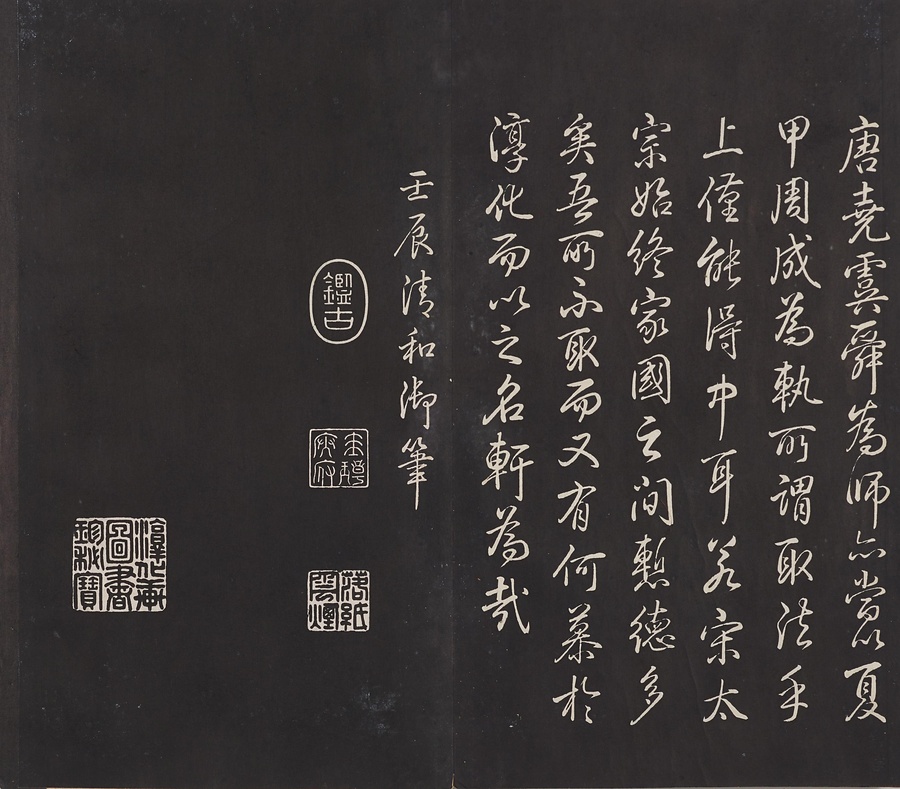 唐堯虞舜為師亦當以夏
甲周成為軌所謂取法乎
上僅能得中耳若宋太
宗始終家國之間慙德多
矣吾所不取而又有何慕於
淳化而以之名軒為哉
壬辰清和御筆
鑑古
落紙雲煙
淳化軒圖書珍秘寶